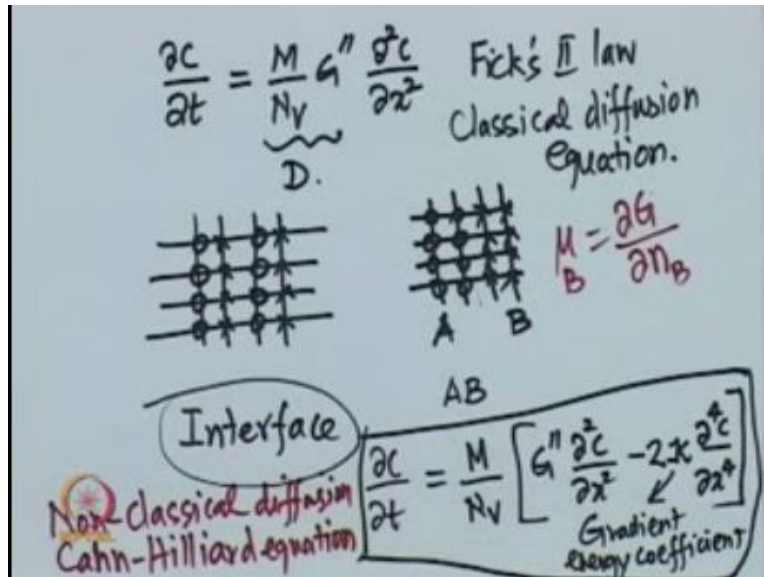 ∂c/∂t = M/Nv G" ∂²c/∂x²
D.
Fick's II law
Classical diffusion
equation.
μB = ∂G/∂nB
A B
AB
Interface
Non-classical diffusion
Cahn-Hilliard equation
∂c/∂t = M/Nv [G" ∂²c/∂x² - 2κ ∂⁴c/∂x⁴]
Gradient
energy coefficient